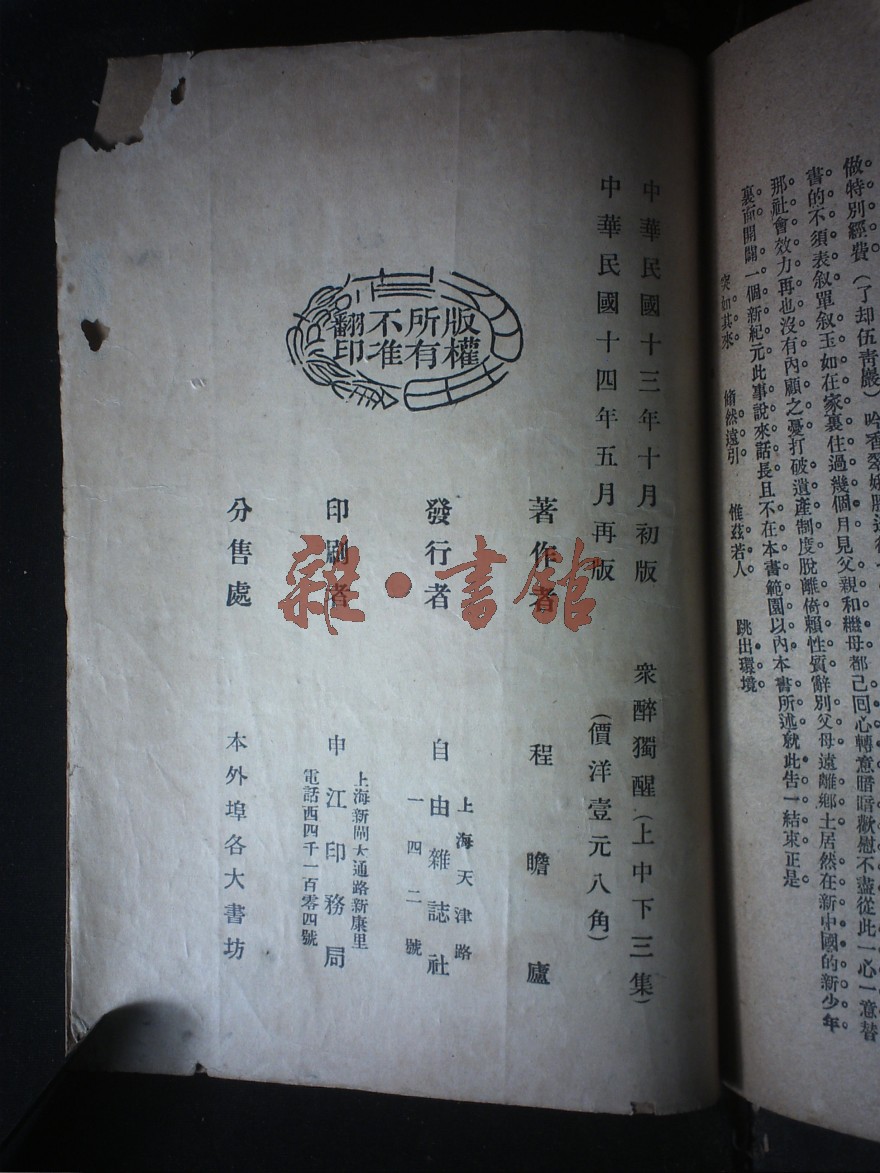 做特別經費（了却伍青嚴）
書的不須表叙單叙玉如在家裏住過幾個月見父親和繼母都已回心轉意暗暗歡慰不盡從此一心一意替
那社會效力再也沒有內顧之憂打破遺產制度脫離倚賴性質辭別父母遠離鄉土居然在新中國的新少年
裏面開闢一個新紀元此事說來話長且不在本書範圍以內本書所述就此告一結束正是
突如其來　翛然遠引　惟茲若人　跳出環境
中華民國十三年十月初版
中華民國十四年五月再版
衆醉獨醒（上中下三集）
（價洋壹元八角）
版權所有不准翻印
著作者　程瞻廬
發行者　上海天津路一四二號
自由雜誌社
印刷者　申江印務局
上海新閘大通路新康里
電話西四千一百零四號
分售處　本外埠各大書坊
雜·書館